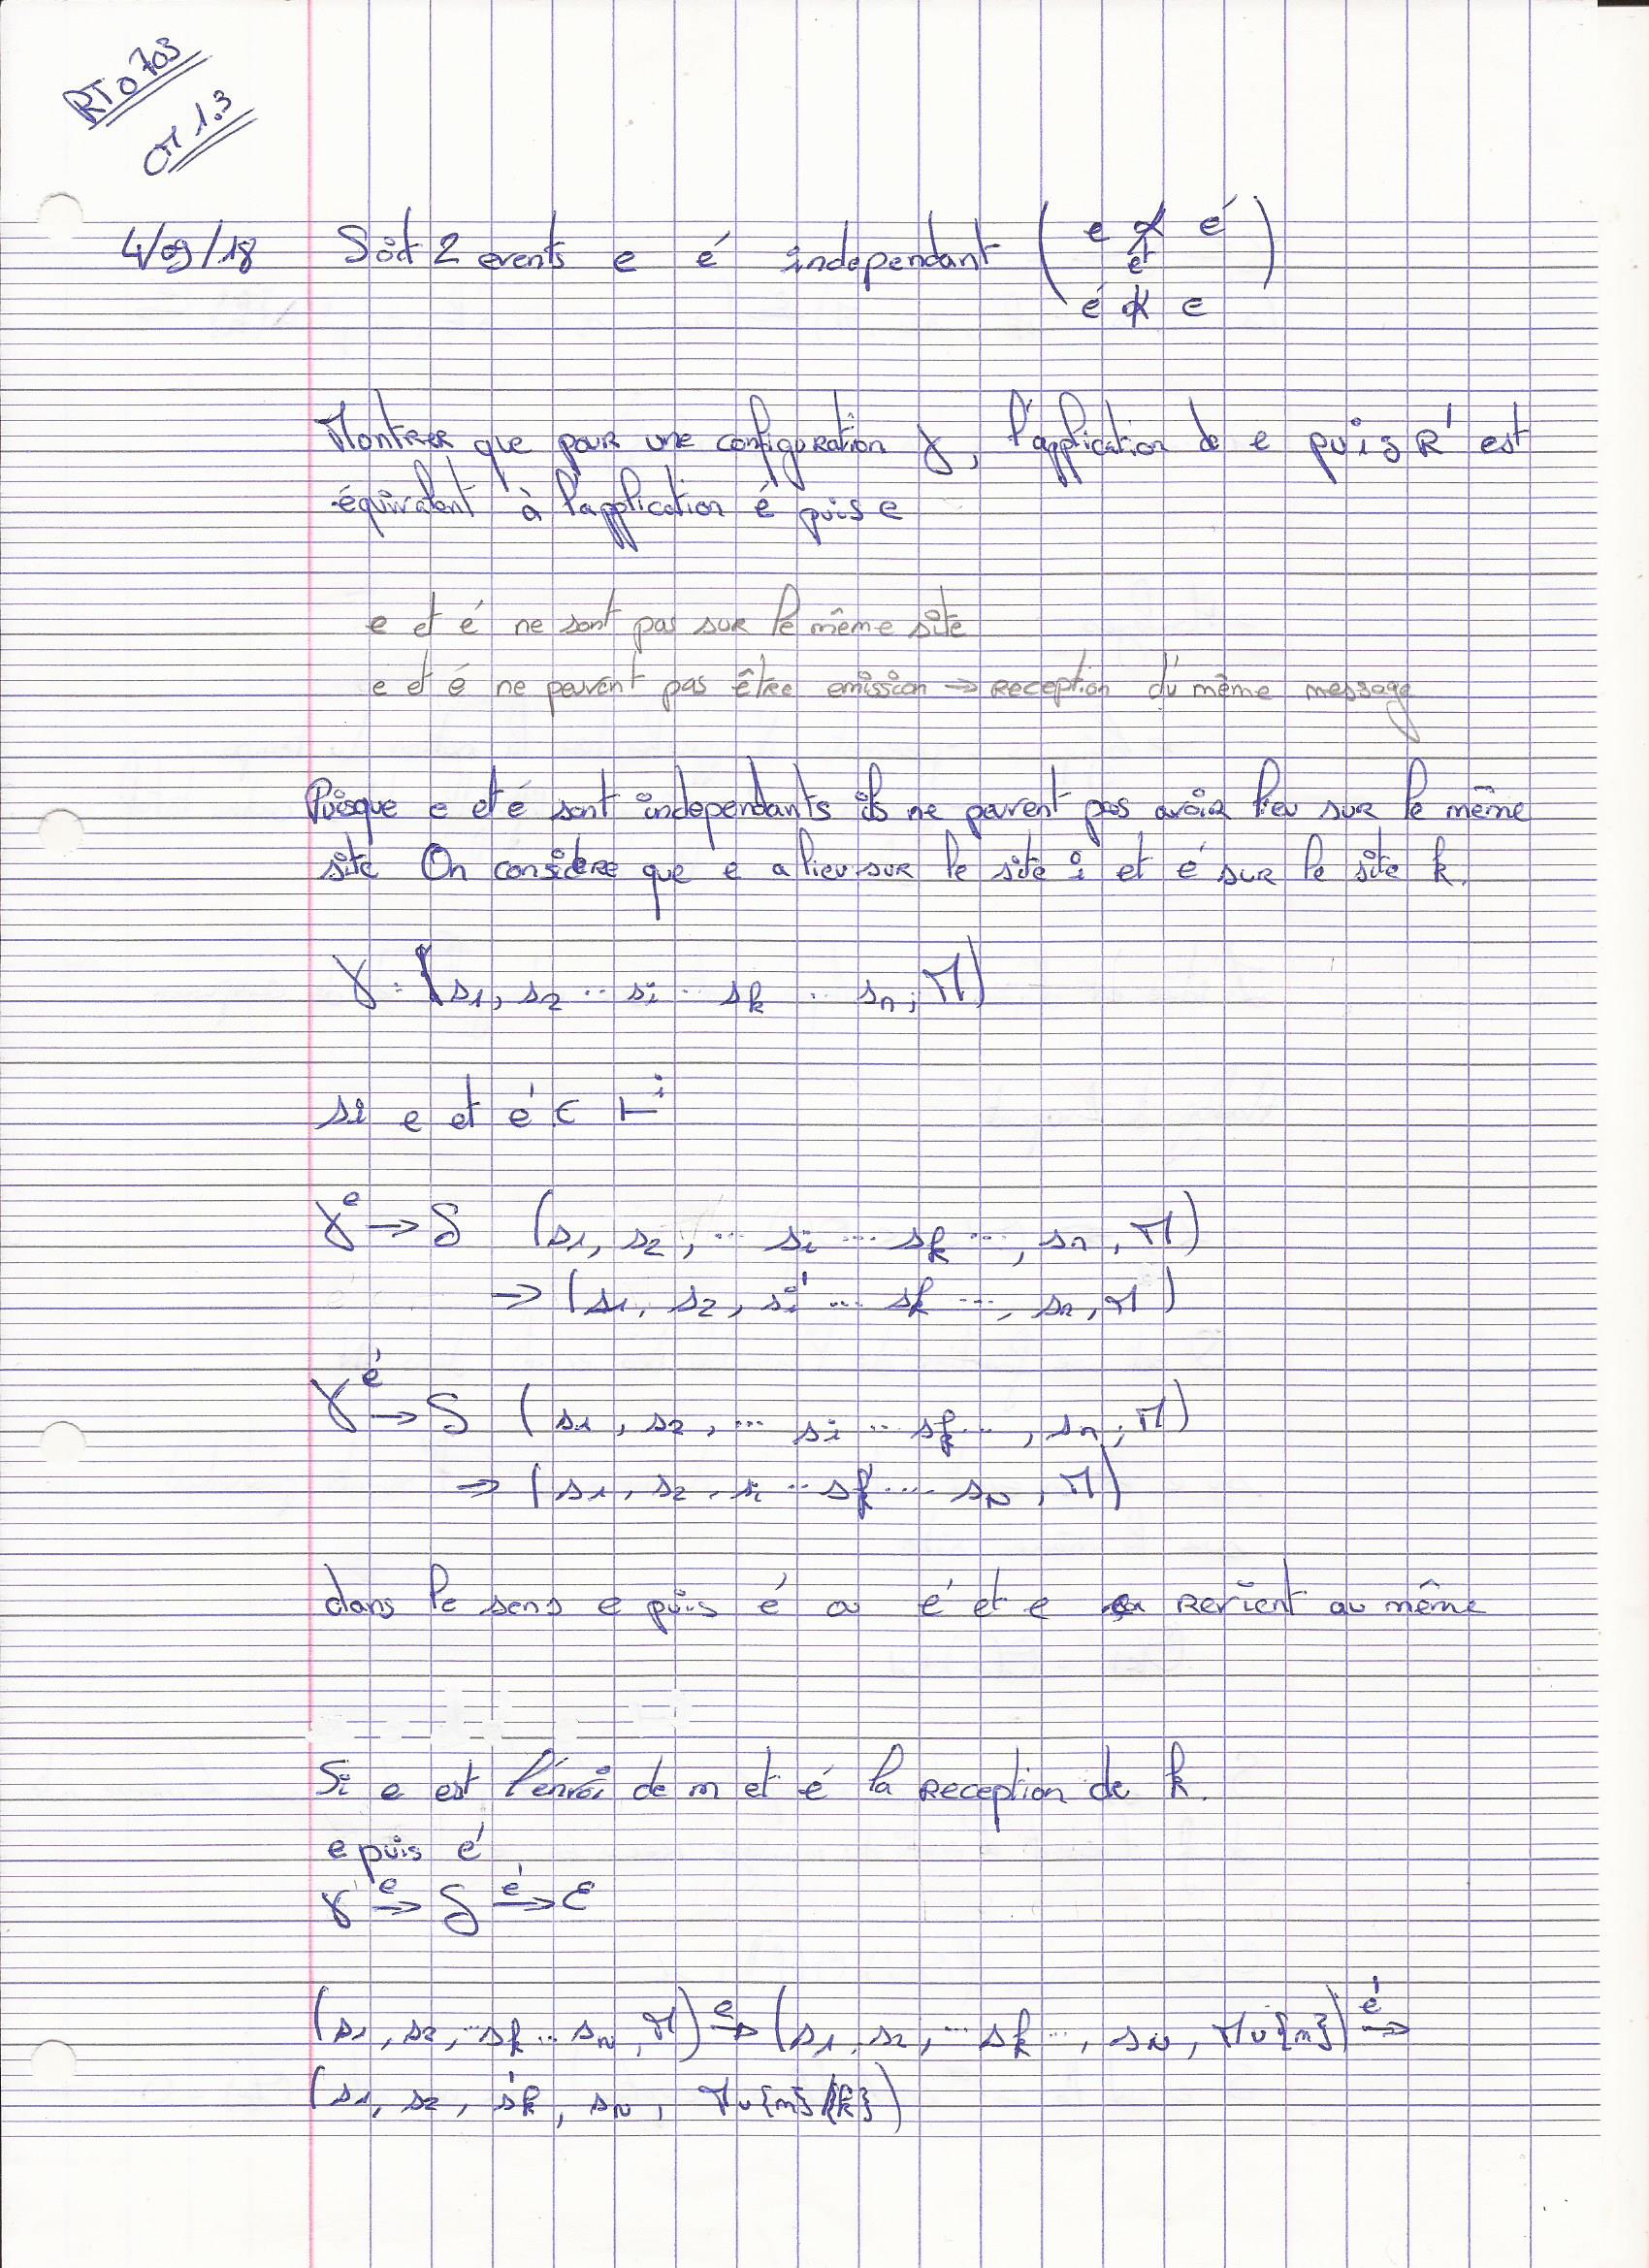 RT0703
CM 1.3
4/09/18 Soit 2 events e é independant ( e ⊀ é
et
é ⊀ e )
Montrer que pour une configuration γ, l'application de e puis R' est
équivalent à l'application é puis e
e et é ne sont pas sur le même site
e et é ne peuvent pas être emission → reception du même message
Puisque e et é sont independants ils ne peuvent pas avoir lieu sur le même
site On considere que e a lieu sur le site i et é sur le site k.
γ = (s1, s2 ... si ... sk ... sn, M)
si e et é ∈ ⊢i
γ e→ δ (s1, s2, ... si ... sk ..., sn, M)
→ (s1, s2, si' ... sk ..., sn, M)
γ é→ δ (s1, s2, ... si ... sk ..., sn, M)
→ (s1, s2, si ... sk' ... sN, M)
dans le sens e puis é ou é et e ça revient au même
Si e est l'envoi de m et é la reception de k.
e puis é
γ e→ δ é→ ε
(s1, s2, ... sk ... sN, M) e→ (s1, s2, ... sk ..., sN, M∪{m}) é→
(s1, s2, s'k, sN, M∪{m}\{k})